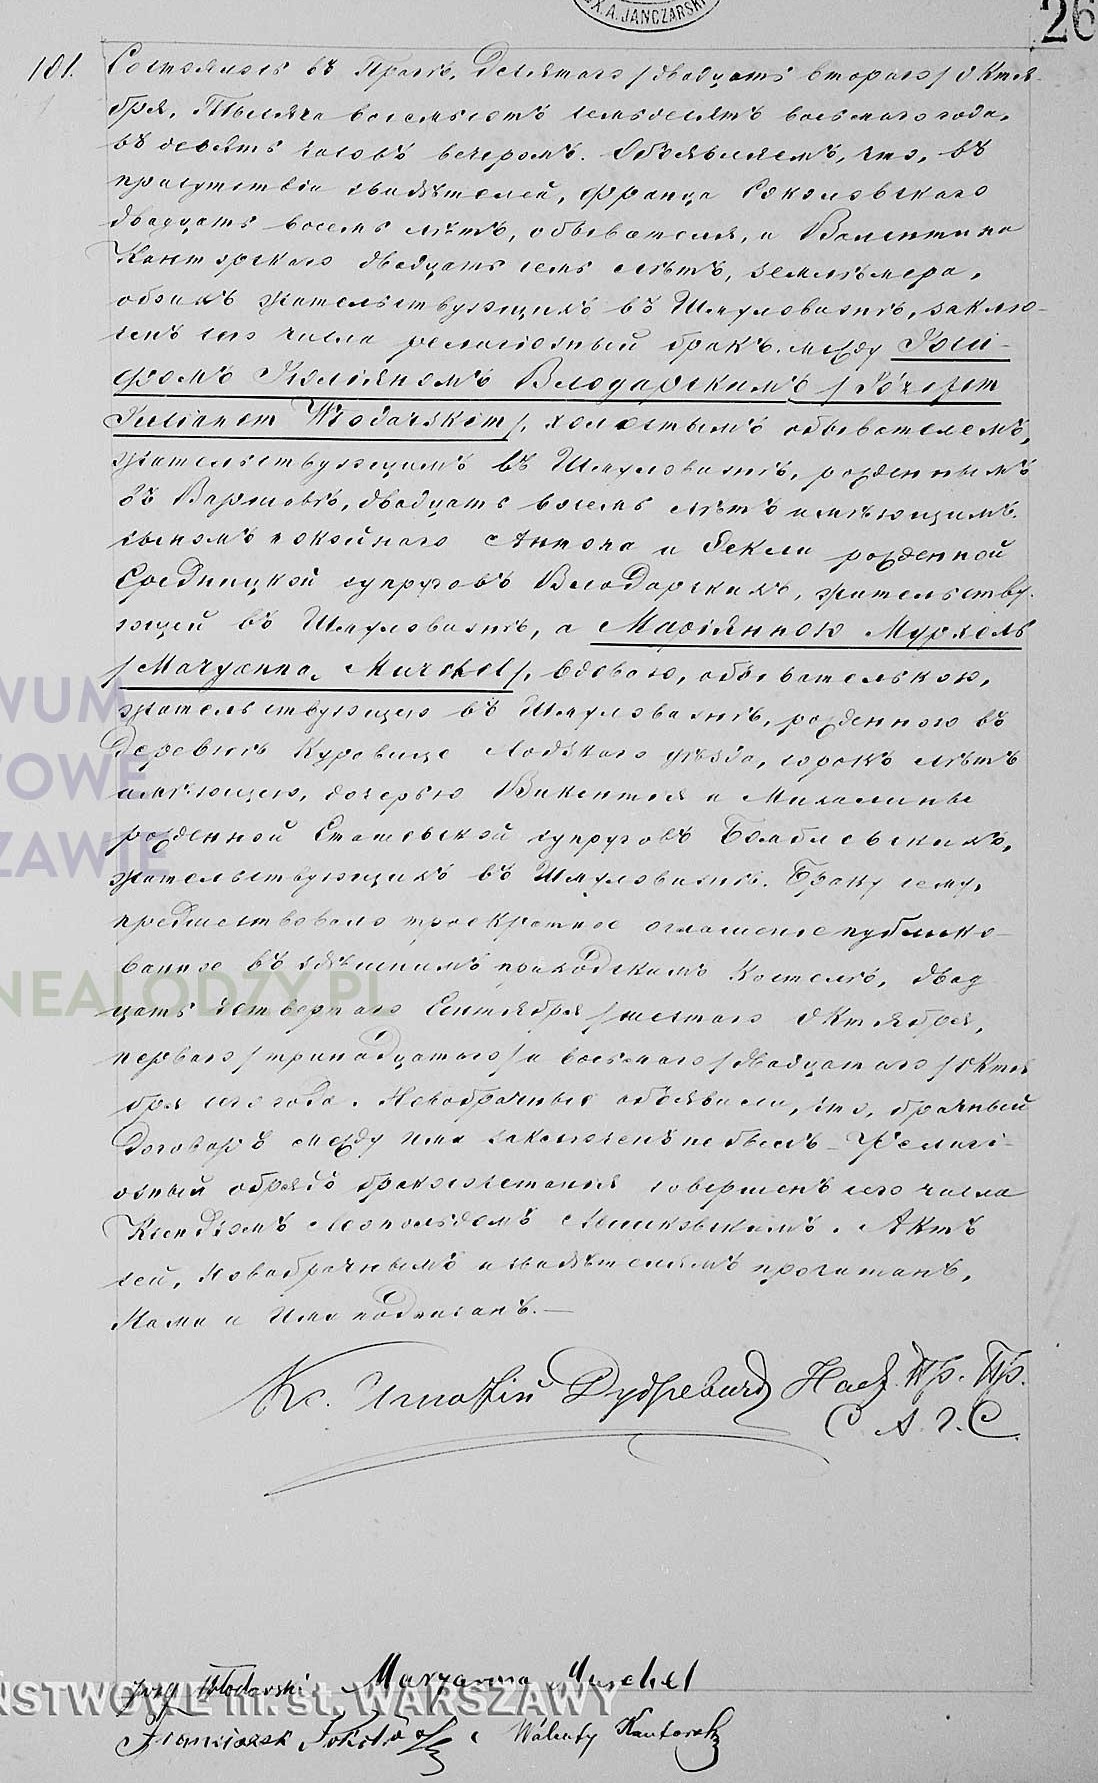 X. A. JANCZARSKI
26
181.
Состоялось въ Прагѣ, Десятаго /двадцать втораго/ Октя-
бря, Тысяча восемьсотъ семьдесятъ восьмаго года,
въ девять часовъ вечеромъ. Объявляемъ, что, въ
присутствіи свидѣтелей, Франца Соколовскаго
двадцать восемь лѣтъ, обывателя, и Валентина
Канторскаго двадцать семь лѣтъ, землемѣра,
обоихъ жительствующихъ въ Шмуловизнѣ, заклю-
ченъ сего числа религіозный бракъ между Іоси-
фомъ Юліяномъ Влодарскимъ /Józefem
Julianem Włodarskim/, холостымъ обывателемъ,
жительствующимъ въ Шмуловизнѣ, рожденнымъ
въ Варшавѣ, двадцать восемь лѣтъ имѣющимъ,
сыномъ покойнаго Антона и Ѳекли рожденной
супруговъ Влодарскихъ, жительству-
ющей въ Шмуловизнѣ, а Маріянною Мурхель
/Maryanna Murchel/, вдовою, обывательскою,
жительствующею въ Шмуловизнѣ, рожденною въ
Деревнѣ Куровице Лодзкаго уѣзда, сорокъ лѣтъ
имѣющею, дочерью Викентія и Михалины
рожденной супруговъ
жительствующихъ въ Шмуловизнѣ. Браку сему
предшествовало троекратное оглашеніе публико-
ванное въ здѣшнемъ приходскомъ Костелѣ, двад
цать четвертаго Сентября /шестаго Октября,
перваго /тринадцатаго/ и восьмаго /двадцатаго/ Октя
бря сего года. Новобрачные объявили, что, брачный
Договоръ между ими заключенъ не былъ. Религі-
озный обрядъ бракосочетанія совершенъ сего числа
Ксендзомъ Леопольдомъ. Актъ
сей, Новобрачнымъ и свидѣтелямъ прочитанъ,
Нами и Ими подписанъ.—
Кс. Игнатій Дудревичъ Наст. Пр. Пр.
С. А. Г. С.
WUM
TOWE
ZAWIE
NEALODZY.PL
Józef Włodarski Maryanna Murchel
ŃSTWOWE m. st. WARSZAWY
Franciszek Walenty Kantorski